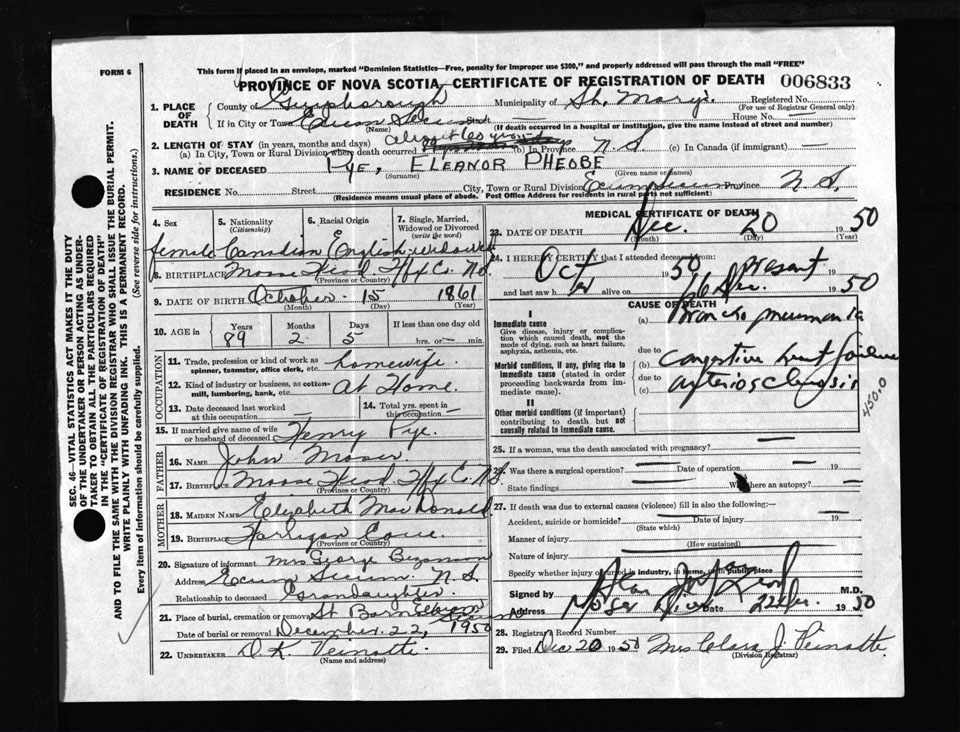 This form if placed in an envelope, marked "Dominion Statistics—Free, penalty for improper use $300," and properly addressed will pass through the mail "FREE"
FORM 6
PROVINCE OF NOVA SCOTIA—CERTIFICATE OF REGISTRATION OF DEATH 006833
1. PLACE OF DEATH County of Guysborough Municipality of St. Mary's Registered No.
(For use of Registrar General only)
If in City or Town Ecum Secum House No. —
(Name) (If death occurred in a hospital or institution, give the name instead of street and number)
2. LENGTH OF STAY (in years, months and days) about 65 years
(a) In City, Town or Rural Division where death occurred (b) In Province N.S. (c) In Canada (if immigrant) —
3. NAME OF DECEASED PYE, ELEANOR PHEOBE
(Surname) (Given name or names)
RESIDENCE No. Street City, Town or Rural Division Ecum Secum Province N.S.
(Residence means usual place of abode. Post Office Address for residents in rural parts not sufficient)
4. Sex 5. Nationality (Citizenship) 6. Racial Origin 7. Single, Married, Widowed or Divorced (write the word)
female Canadian English widowed
8. BIRTHPLACE Moose Head Hfx Co. N.S.
(Province or Country)
9. DATE OF BIRTH October 15 1861
(Month) (Day) (Year)
10. AGE in Years Months Days If less than one day old
89 2 5 hrs. or — min.
OCCUPATION
11. Trade, profession or kind of work as spinner, teamster, office clerk, etc. housewife
12. Kind of industry or business, as cotton-mill, lumbering, bank, etc. at Home.
13. Date deceased last worked at this occupation — 14. Total yrs. spent in this occupation —
15. If married give name of wife or husband of deceased Henry Pye.
FATHER
16. NAME John Moser
17. BIRTHPLACE Moose Head Hfx Co. N.S.
(Province or Country)
MOTHER
18. MAIDEN NAME Elizabeth MacDonald
19. BIRTHPLACE Harrigan Cove
(Province or Country)
20. Signature of informant Mrs George
Address Ecum Secum N.S.
Relationship to deceased Grandaughter.
21. Place of burial, cremation or removal St Barn Ecum Secum
Date of burial or removal December 22, 1950
22. UNDERTAKER D. K. Veinotte.
(Name and address)
MEDICAL CERTIFICATE OF DEATH
23. DATE OF DEATH Dec. 20 1950
(Month) (Day) (Year)
24. I HEREBY CERTIFY that I attended deceased from:
Oct 1950 to present
and last saw her alive on 16 Dec. 1950
CAUSE OF DEATH
I
Immediate cause
Give disease, injury or complication which caused death, not the mode of dying, such as heart failure, asphyxia, asthenia, etc.
(a) Broncho pneumonia
due to
Morbid conditions, if any, giving rise to immediate cause (stated in order proceeding backwards from immediate cause).
(b) congestive heart failure
due to
(c) arteriosclerosis
450.0
II
Other morbid conditions (if important) contributing to death but not causally related to immediate cause.
25. If a woman, was the death associated with pregnancy? —
26. Was there a surgical operation? — Date of operation — 19
State findings — Was there an autopsy? —
27. If death was due to external causes (violence) fill in also the following:—
Accident, suicide or homicide? Date of injury 19
(State which)
Manner of injury
(How sustained)
Nature of injury
Specify whether injury occurred in industry, in home, or in public place
Signed by M.D.
Address Moser River Date 22 Dec. 1950
28. Registrar's Record Number
29. Filed Dec 20 1950 Mrs Clara J. Veinotte.
(Division Registrar)
SEC. 46—VITAL STATISTICS ACT MAKES IT THE DUTY
OF THE UNDERTAKER OR PERSON ACTING AS UNDERTAKER TO OBTAIN ALL THE PARTICULARS REQUIRED
IN THE "CERTIFICATE OF REGISTRATION OF DEATH"
AND TO FILE THE SAME WITH THE DIVISION REGISTRAR WHO SHALL ISSUE THE BURIAL PERMIT.
WRITE PLAINLY WITH UNFADING INK. THIS IS A PERMANENT RECORD.
Every item of information should be carefully supplied. (See reverse side for instructions.)